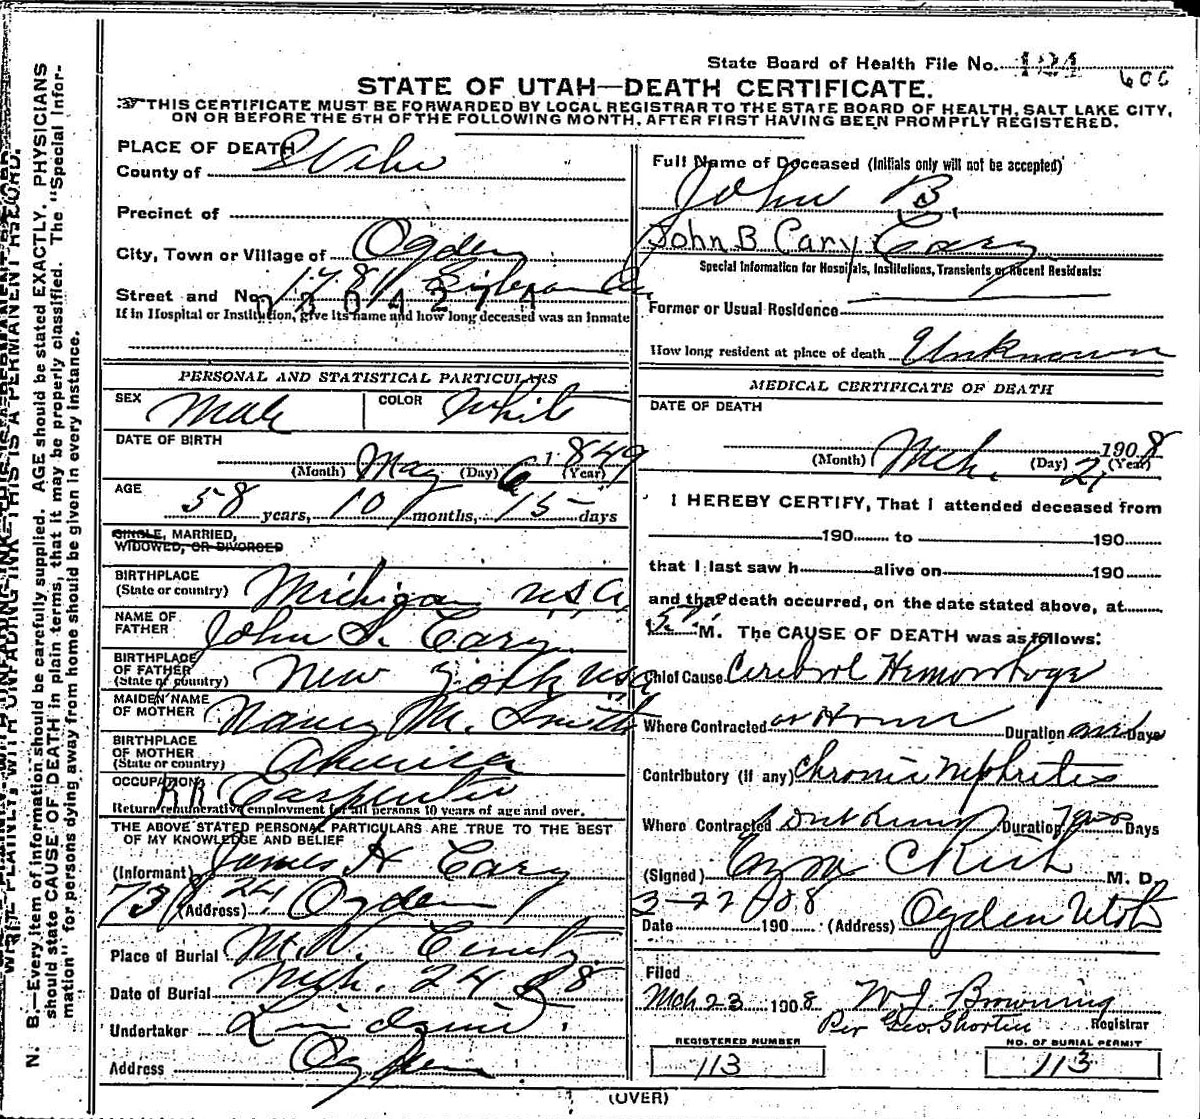 State Board of Health File No. 121
606
STATE OF UTAH—DEATH CERTIFICATE.
THIS CERTIFICATE MUST BE FORWARDED BY LOCAL REGISTRAR TO THE STATE BOARD OF HEALTH, SALT LAKE CITY,
ON OR BEFORE THE 5TH OF THE FOLLOWING MONTH, AFTER FIRST HAVING BEEN PROMPTLY REGISTERED.
N. B.—Every item of information should be carefully supplied. AGE should be stated EXACTLY. PHYSICIANS
should state CAUSE OF DEATH in plain terms, that it may be properly classified. The "Special Infor-
mation" for persons dying away from home should be given in every instance.
WRITE PLAINLY, WITH UNFADING INK—THIS IS A PERMANENT RECORD.
PLACE OF DEATH
County of
Precinct of
City, Town or Village of Ogden
Street and No. 1781
0804274
If in Hospital or Institution, give its name and how long deceased was an inmate
PERSONAL AND STATISTICAL PARTICULARS
SEX Male COLOR White
DATE OF BIRTH
May 6 1849
(Month) (Day) (Year)
AGE
58 years, 10 months, 15 days
SINGLE, MARRIED,
WIDOWED, OR DIVORCED
BIRTHPLACE
(State or country) Michigan USA
NAME OF
FATHER John S. Cary
BIRTHPLACE
OF FATHER
(State or country) New York USA
MAIDEN NAME
OF MOTHER Nancy M. Smith
BIRTHPLACE
OF MOTHER
(State or country) America
OCCUPATION RR Carpenter
Return remunerative employment for all persons 10 years of age and over.
THE ABOVE STATED PERSONAL PARTICULARS ARE TRUE TO THE BEST
OF MY KNOWLEDGE AND BELIEF
(Informant) James H Cary
(Address) 731 24 Ogden
Place of Burial Mt.
Date of Burial Mch. 24 08
Undertaker
Address Ogden
Full Name of Deceased (Initials only will not be accepted)
John B.
John B Cary Cary
Special Information for Hospitals, Institutions, Transients or Recent Residents:
Former or Usual Residence
How long resident at place of death Unknown
MEDICAL CERTIFICATE OF DEATH
DATE OF DEATH
Mch. 21 1908
(Month) (Day) (Year)
I HEREBY CERTIFY, That I attended deceased from
190 to 190
that I last saw h alive on 190
and that death occurred, on the date stated above, at
5 P M. The CAUSE OF DEATH was as follows:
Chief Cause Cerebral Hemorrhage
Where Contracted at Home Duration one Days
Contributory (if any) Chronic Nephritis
Where Contracted Dont Know Duration Days
(Signed) M. D.
3-22 08
Date 190 (Address) Ogden Utah
Filed
Mch 23 1908 W. J. Browning
Per Geo. Shorten Registrar
REGISTERED NUMBER
113
NO. OF BURIAL PERMIT
113
(OVER)